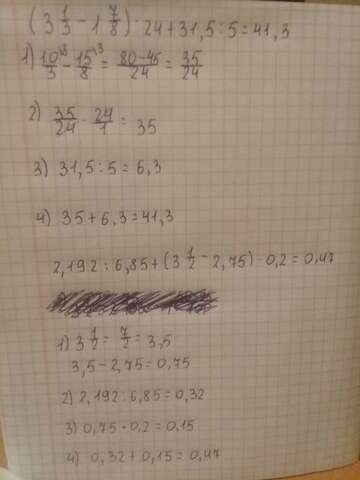 (3 1/3 - 1 7/8) · 24 + 31,5 : 5 = 41,3
1) 10/3 \8 - 15/8 \3 = 80-45/24 = 35/24
2) 35/24 · 24/1 = 35
3) 31,5 : 5 = 6,3
4) 35 + 6,3 = 41,3
2,192 : 6,85 + (3 1/2 - 2,75) · 0,2 = 0,47
1) 3 1/2 = 7/2 = 3,5
3,5 - 2,75 = 0,75
2) 2,192 : 6,85 = 0,32
3) 0,75 · 0,2 = 0,15
4) 0,32 + 0,15 = 0,47